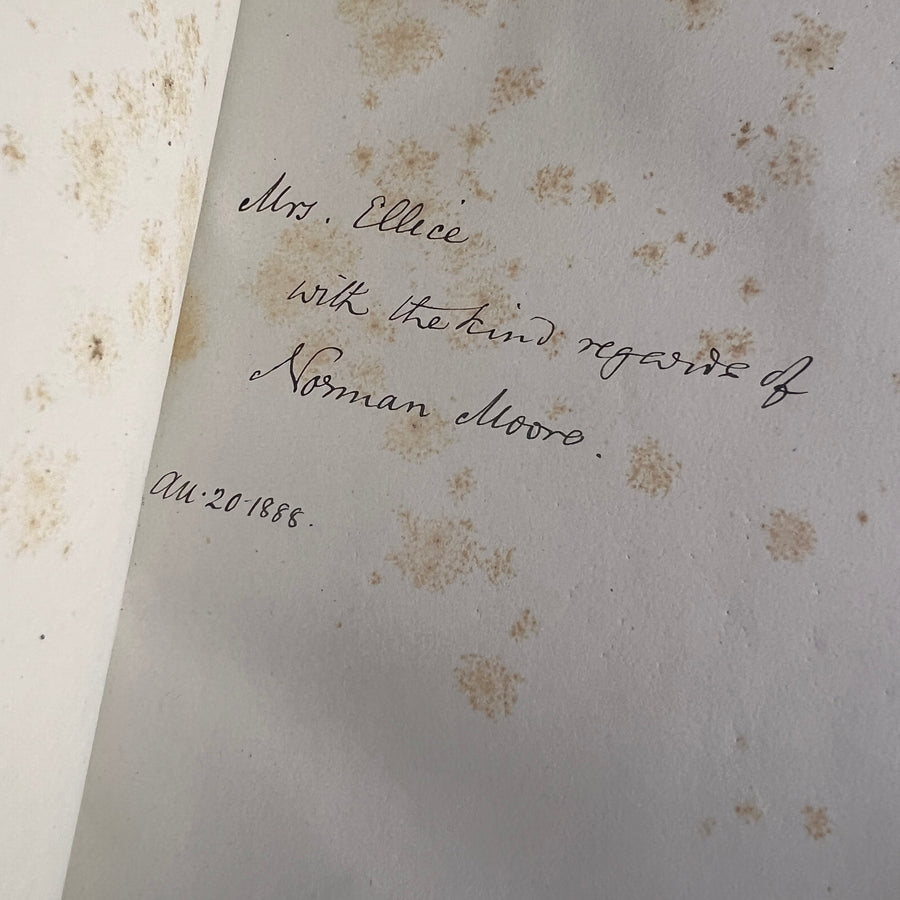 Mrs. Ellice
with the kind regards of
Norman Moore.
20·1888.